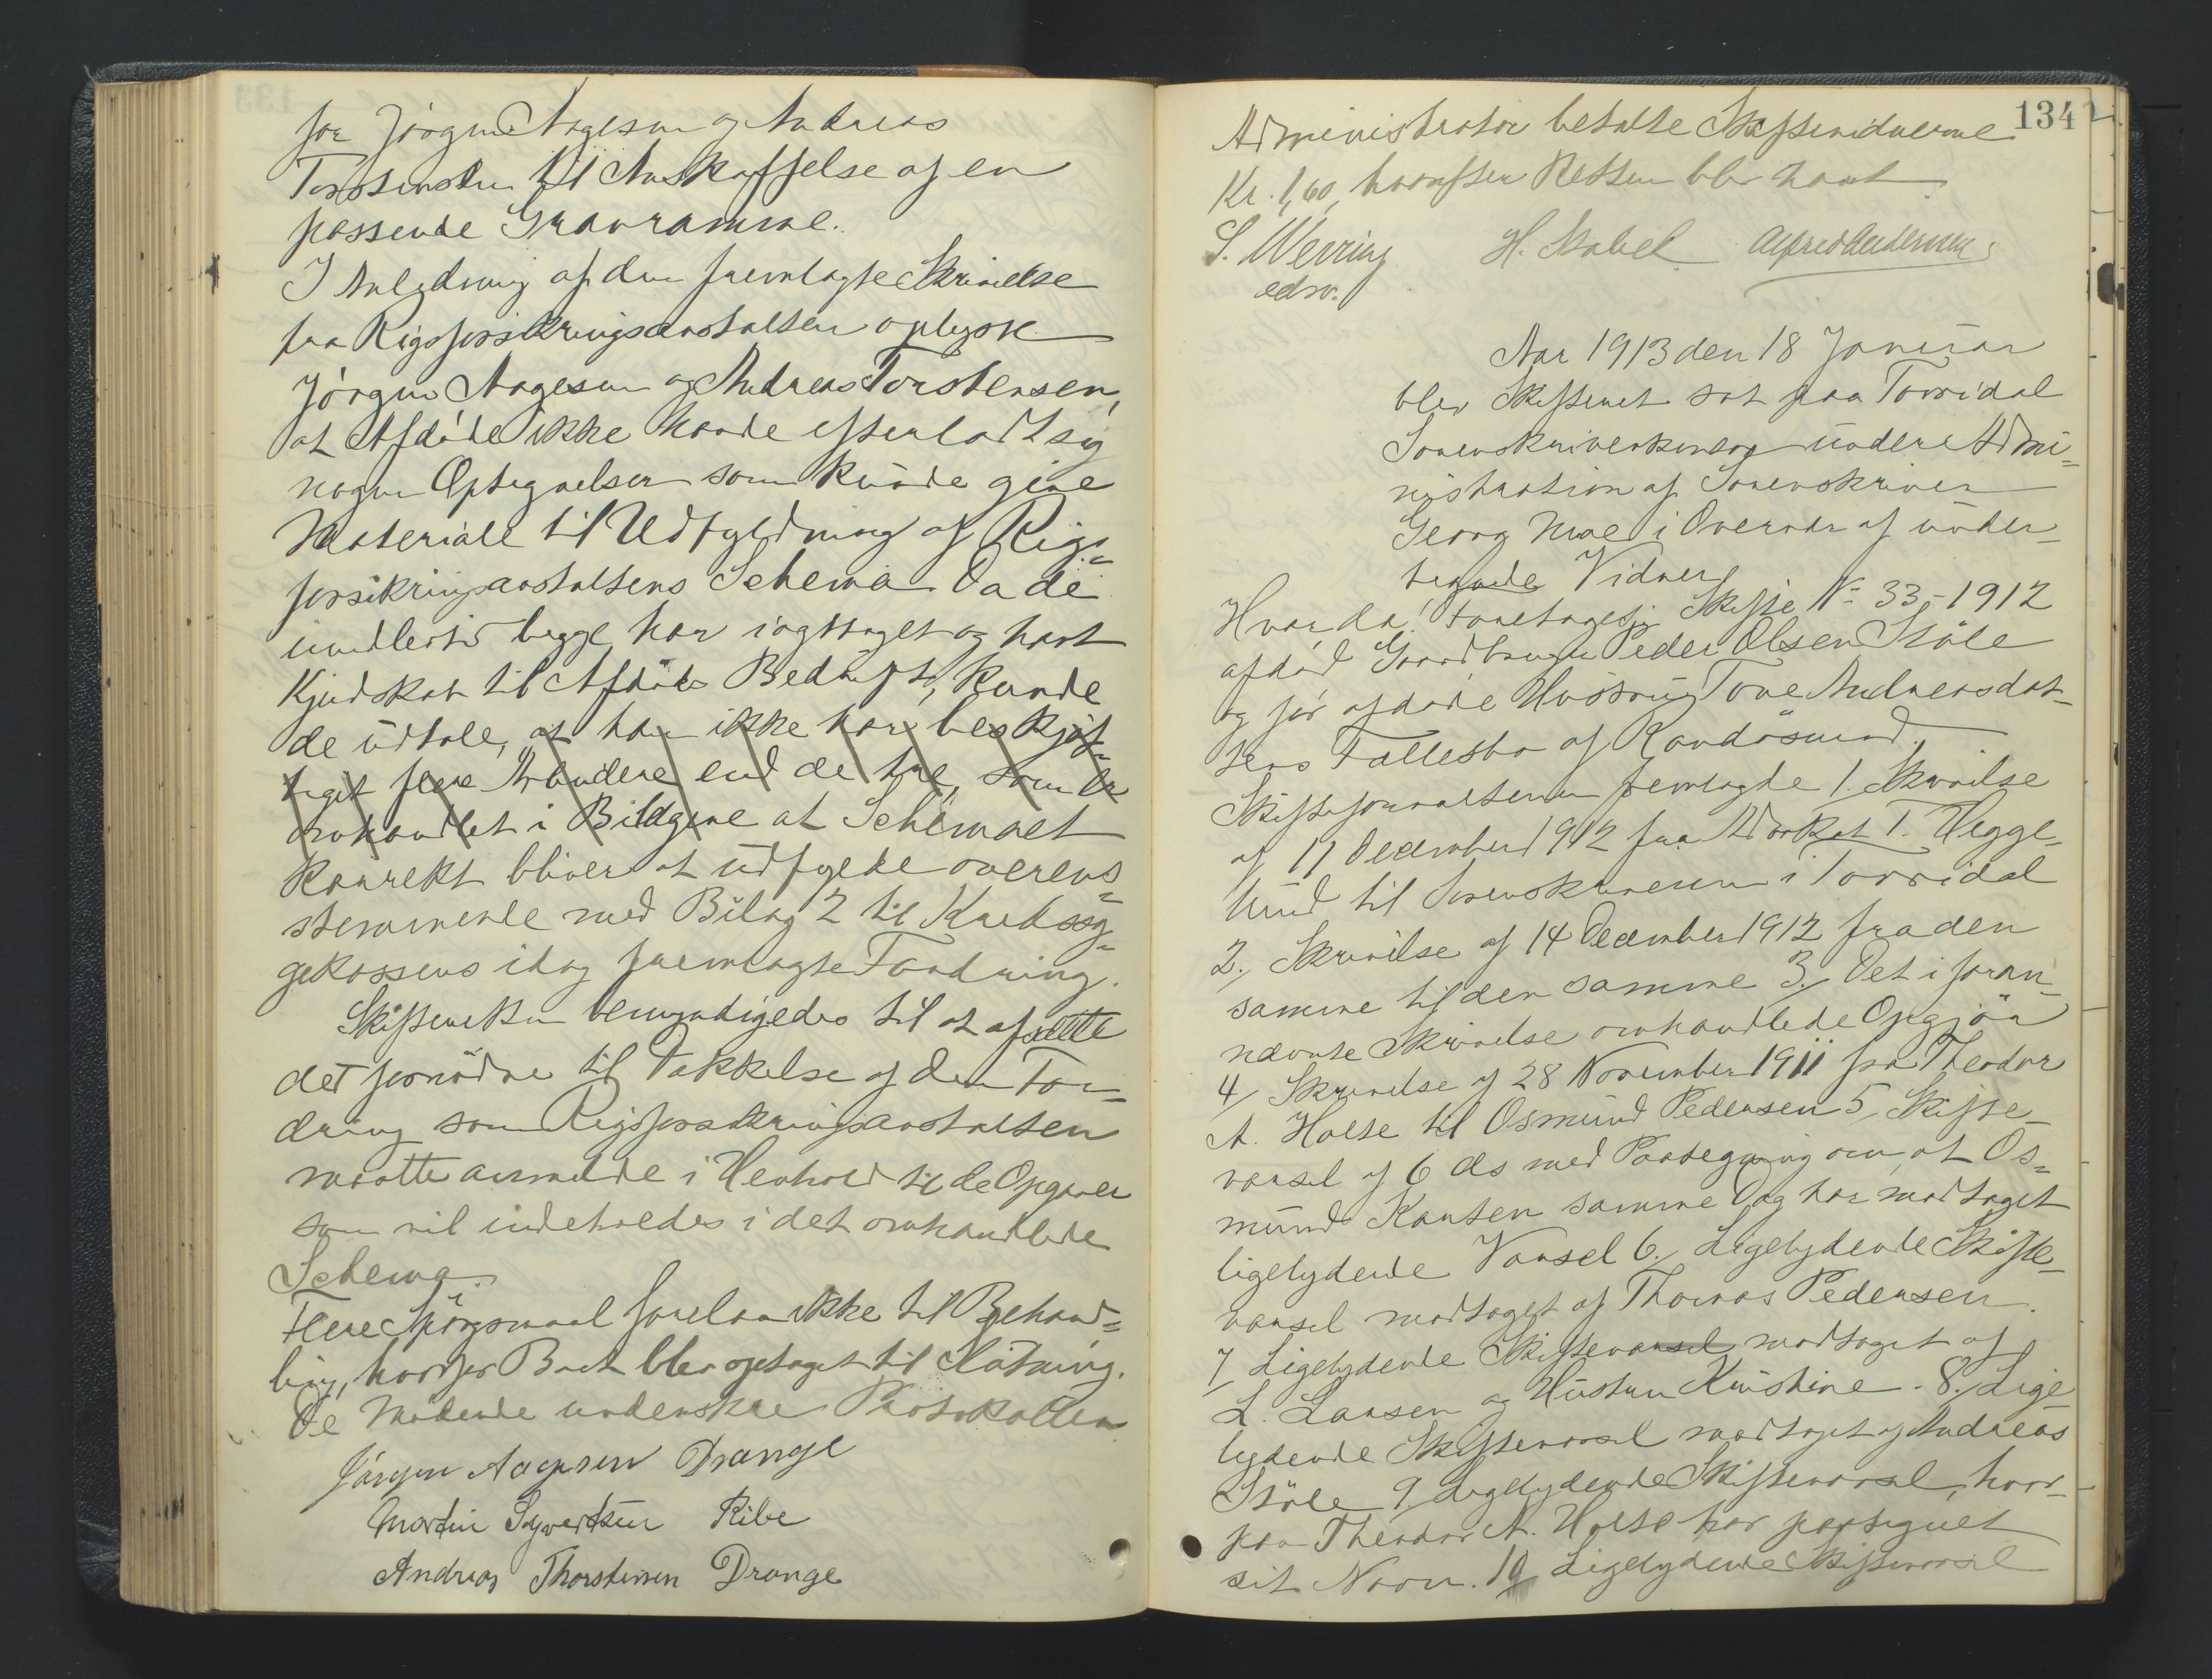 for Jörgen Aagesen og Andreas
Torstensen til Anskaffelse af en
passende Gravramme.
I Anledning af den fremlagte Skrivelse
fra Rigsforsikringsanstalten oplyste
Jörgen Aagesen og Andreas Torstensen,
at Afdöde ikke havde efterladt sig
nogen Optegnelser som kunde give
Materiale til Udfyldning af Rigs-
forsikringsanstaltens Schema. Da de
imidlertid begge har iagttaget og havt
Kjendskab til Afdödes Bedrift, kunde
de udtale, at han ikke har beskjæf-
tiget flere Arbeidere end de tre, som er
omhandlet i Bilagene at Schemaet
korrekt bliver at udfylde overens-
stemmende med Bilag 2 til Kredssy-
gekassens idag fremlagte Fordring.
Skifteretten bemyndigedes til at afsætte
det fornödne til Dækkelse af den For-
dring som Rigsforsikringsanstalten
maatte anmelde i Henhold til de Opgaver
som vil indeholdes i det omhandlede
Schema.
Flere Spörgsmaal forelaa ikke til Behand-
ling, hvorfor Boet blev optaget til Slutning.
De Mödende underskrev Protokollen
Jörgen Aagesen Drange
Martin Syvertsen Ribe
Andreas Thorstensen Drange
134
Administrator betalte Skiftevidnerne
Kr. 1,60, hvorefter Retten blev hævet
S. Werring H. Stabel Alfred Andersen
edsv.
Aar 1913 den 18 Januar
blev Skifteret sat paa Torridal
Sorenskriverkontor under Admi-
nistration af Sorenskriver
Georg Moe i Overvær af under-
tegnede Vidner
Hvorda! Foretoges Skifte No 33,-1912
afdöd Gaardbruger Peder Olsen Stöle
og för afdöde Hustru Tone Andreasdat-
ters Fællesbo af Randösund.
Skifteforvalteren fremlagde 1. Skrivelse
af 11 December 1912 fra Advokat T. Hegge-
lund til Sorenskriveren i Torridal
2. Skrivelse af 14 December 1912 fra den
samme til den samme 3/ Det i foran-
nævnte Skrivelse omhandlede Opgjör
4/ Skrivelse af 28 November 1911 fra Theodor
A. Holte til Osmund Pedersen 5/ Skifte-
varsel af 6 ds med Paategning om, at Os-
mund samme Dag har modtaget
ligelydende Varsel 6./ Ligelydende Skifte-
varsel modtaget af Thomas Pedersen.
7/ Ligelydende Skiftevarsel modtaget af
L. Larsen og Hustru Kristine - 8./ Lige-
lydende Skiftevarsel modtaget af Andreas
Stöle 9/ Ligelydende Skiftevarsel, hvor-
paa Theodor A. Holte har paategnet
sit Navn. 10/ Ligelydende Skiftevarsel